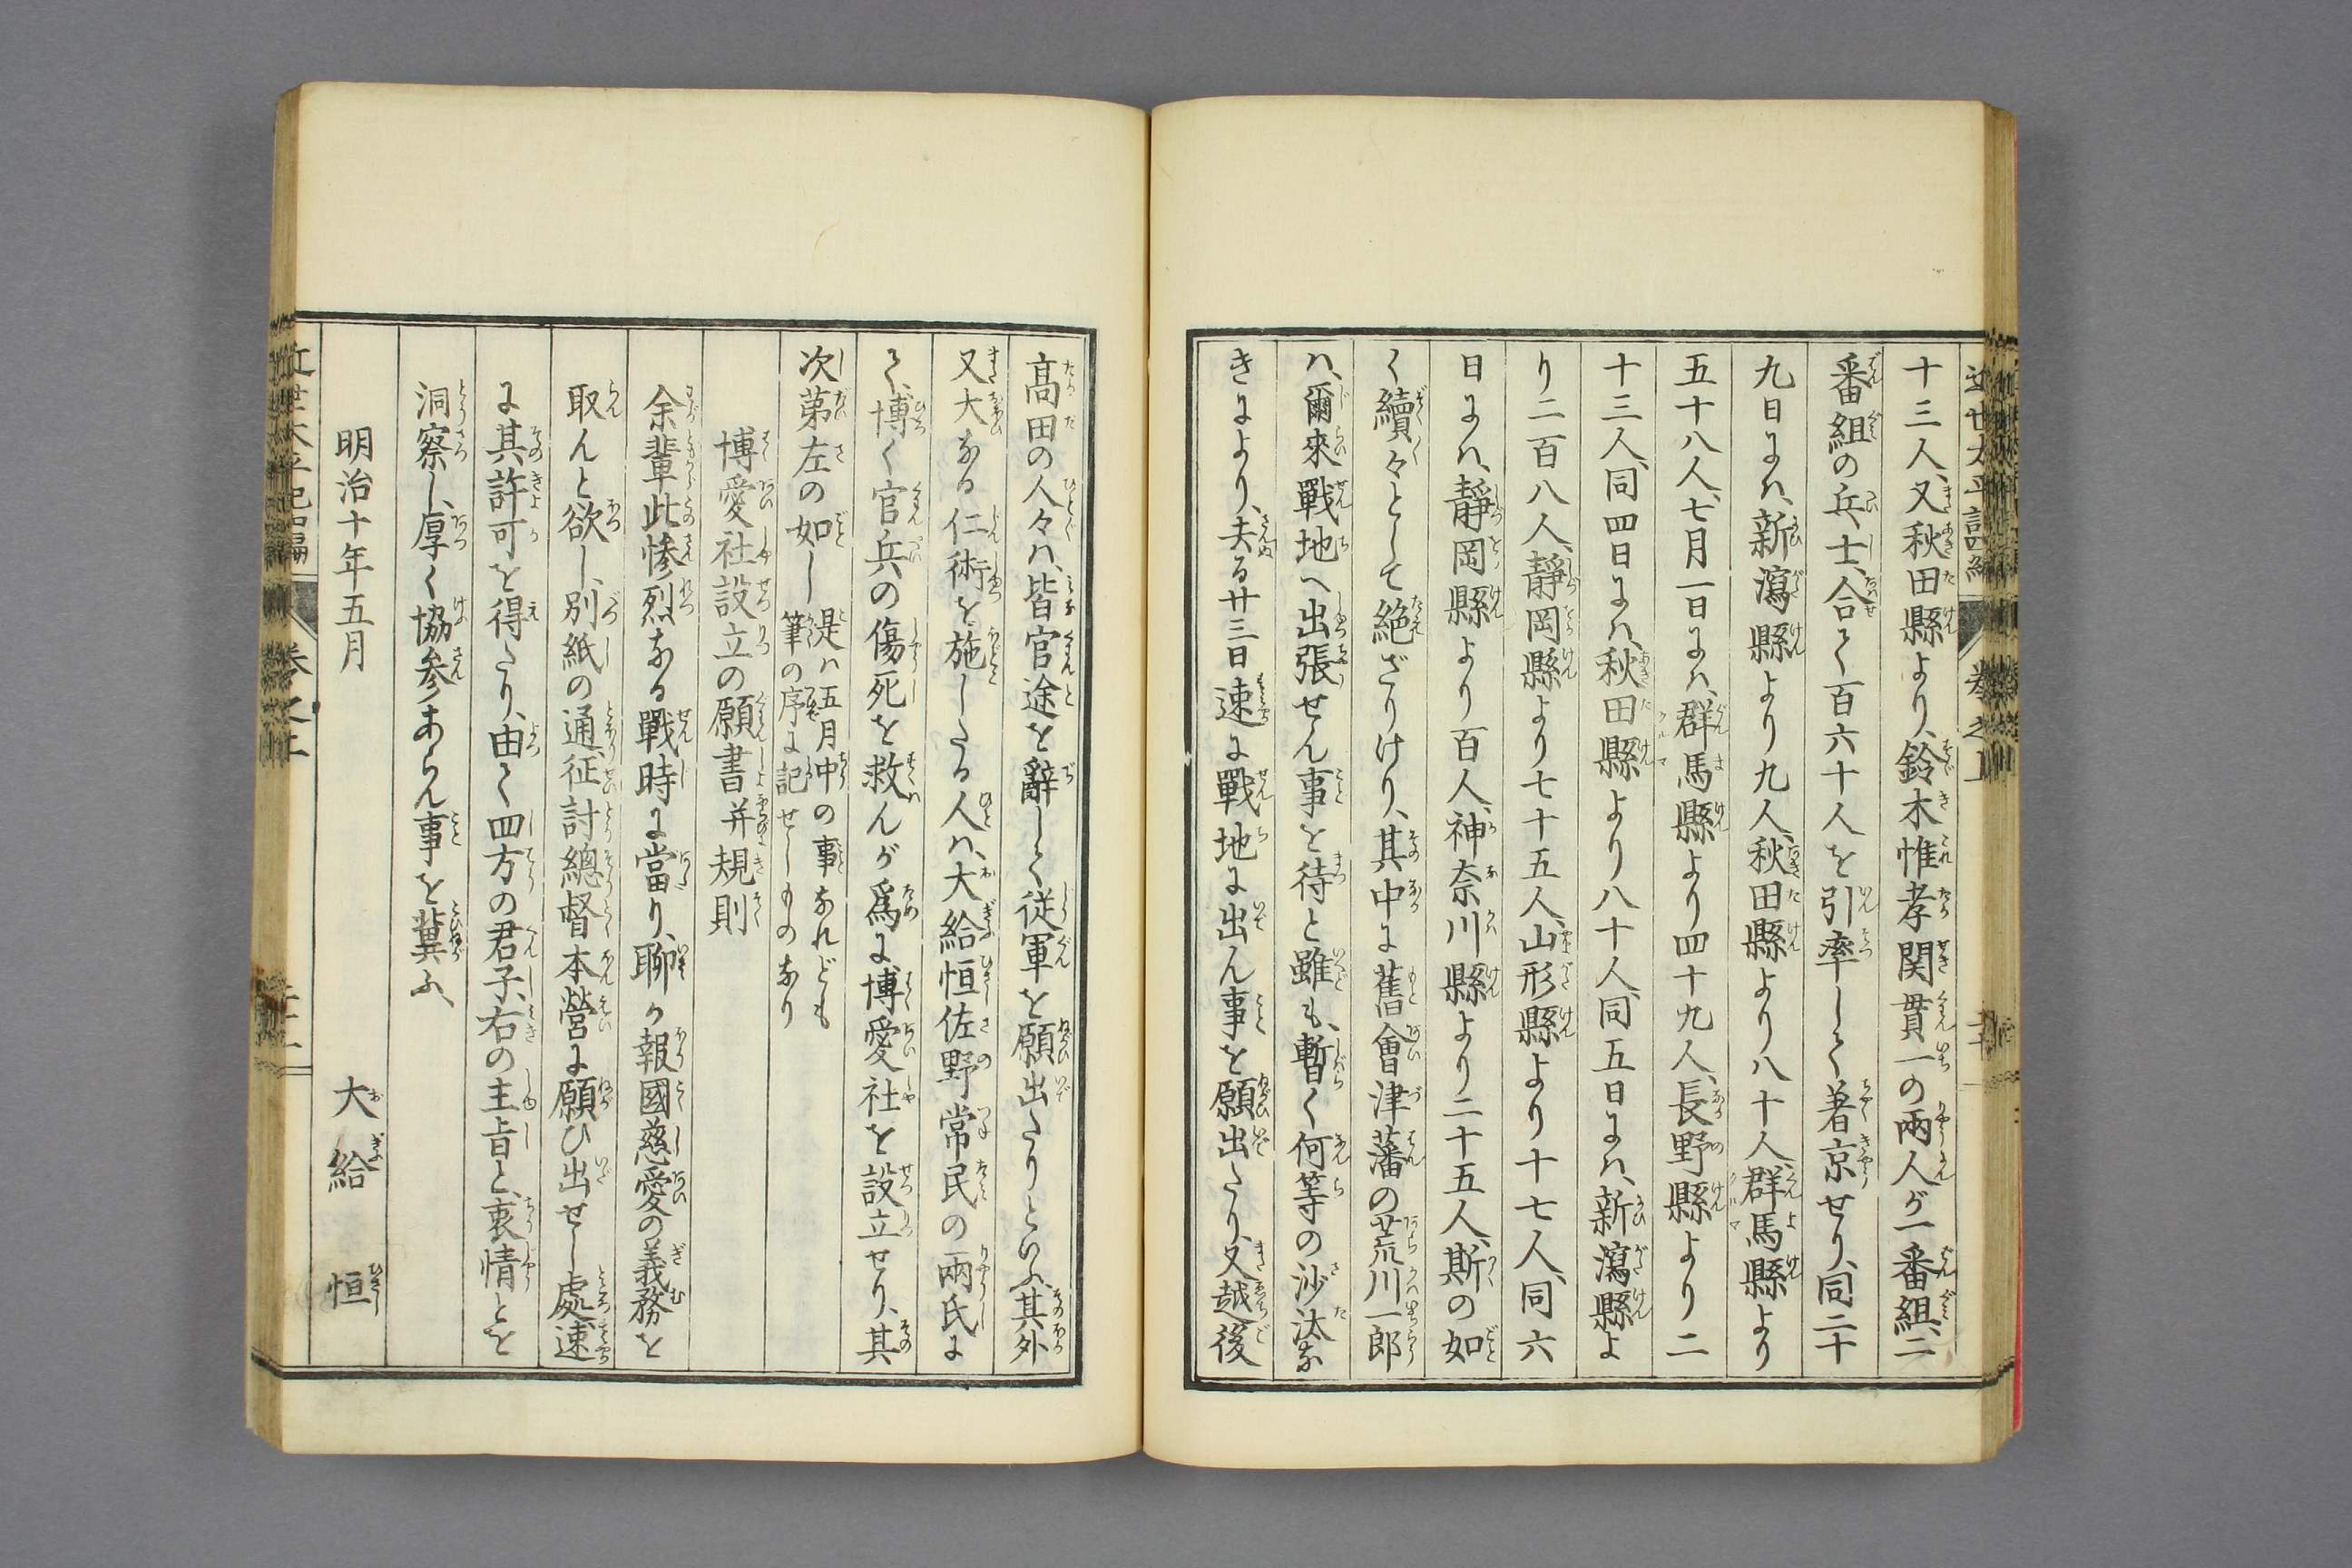 十三人、又秋田縣より、鈴木惟孝関貫一の兩人が一番組、二
番組の兵士、合て百六十人を引率して着京せり、同二十
九日にハ、新瀉縣より九人、秋田縣より八十人、群馬縣より
五十八人、七月一日にハ、群馬縣より四十九人、長野縣より二
十三人、同四日にハ、秋田縣より八十人、同五日にハ、新瀉縣よ
り二百八人、靜岡縣より七十五人、山形縣より十七人、同六
日にハ、靜岡縣より百人、神奈川縣より二十五人、斯の如
く續々として絶ざりけり、其中に舊會津藩の荒川一郎
ハ、爾來戰地へ出張せん事を待と雖も、暫く何等の沙汰な
きにより、去る廿三日速に戰地に出ん事を願出たり、又越後
高田の人々ハ、皆官途を辭して従軍を願出たりといふ、其外
又大なる仁術を施したる人ハ、大給恒佐野常民の兩氏に
て、博く官兵の傷死を救んが爲に、博愛社を設立せり、其
次第左の如し
是ハ五月中の事なれども
筆の序に記せしものなり
博愛社設立の願書并規則
余輩此惨烈なる戰時に當り、聊か報國慈愛の義務を
取んと欲し、別紙の通征討總督本營に願ひ出せし處速
に其許可を得たり、由て四方の君子、右の主旨と、衷情とを
洞察し、厚く協参あらん事を冀ふ、
明治十年五月
大給　恒